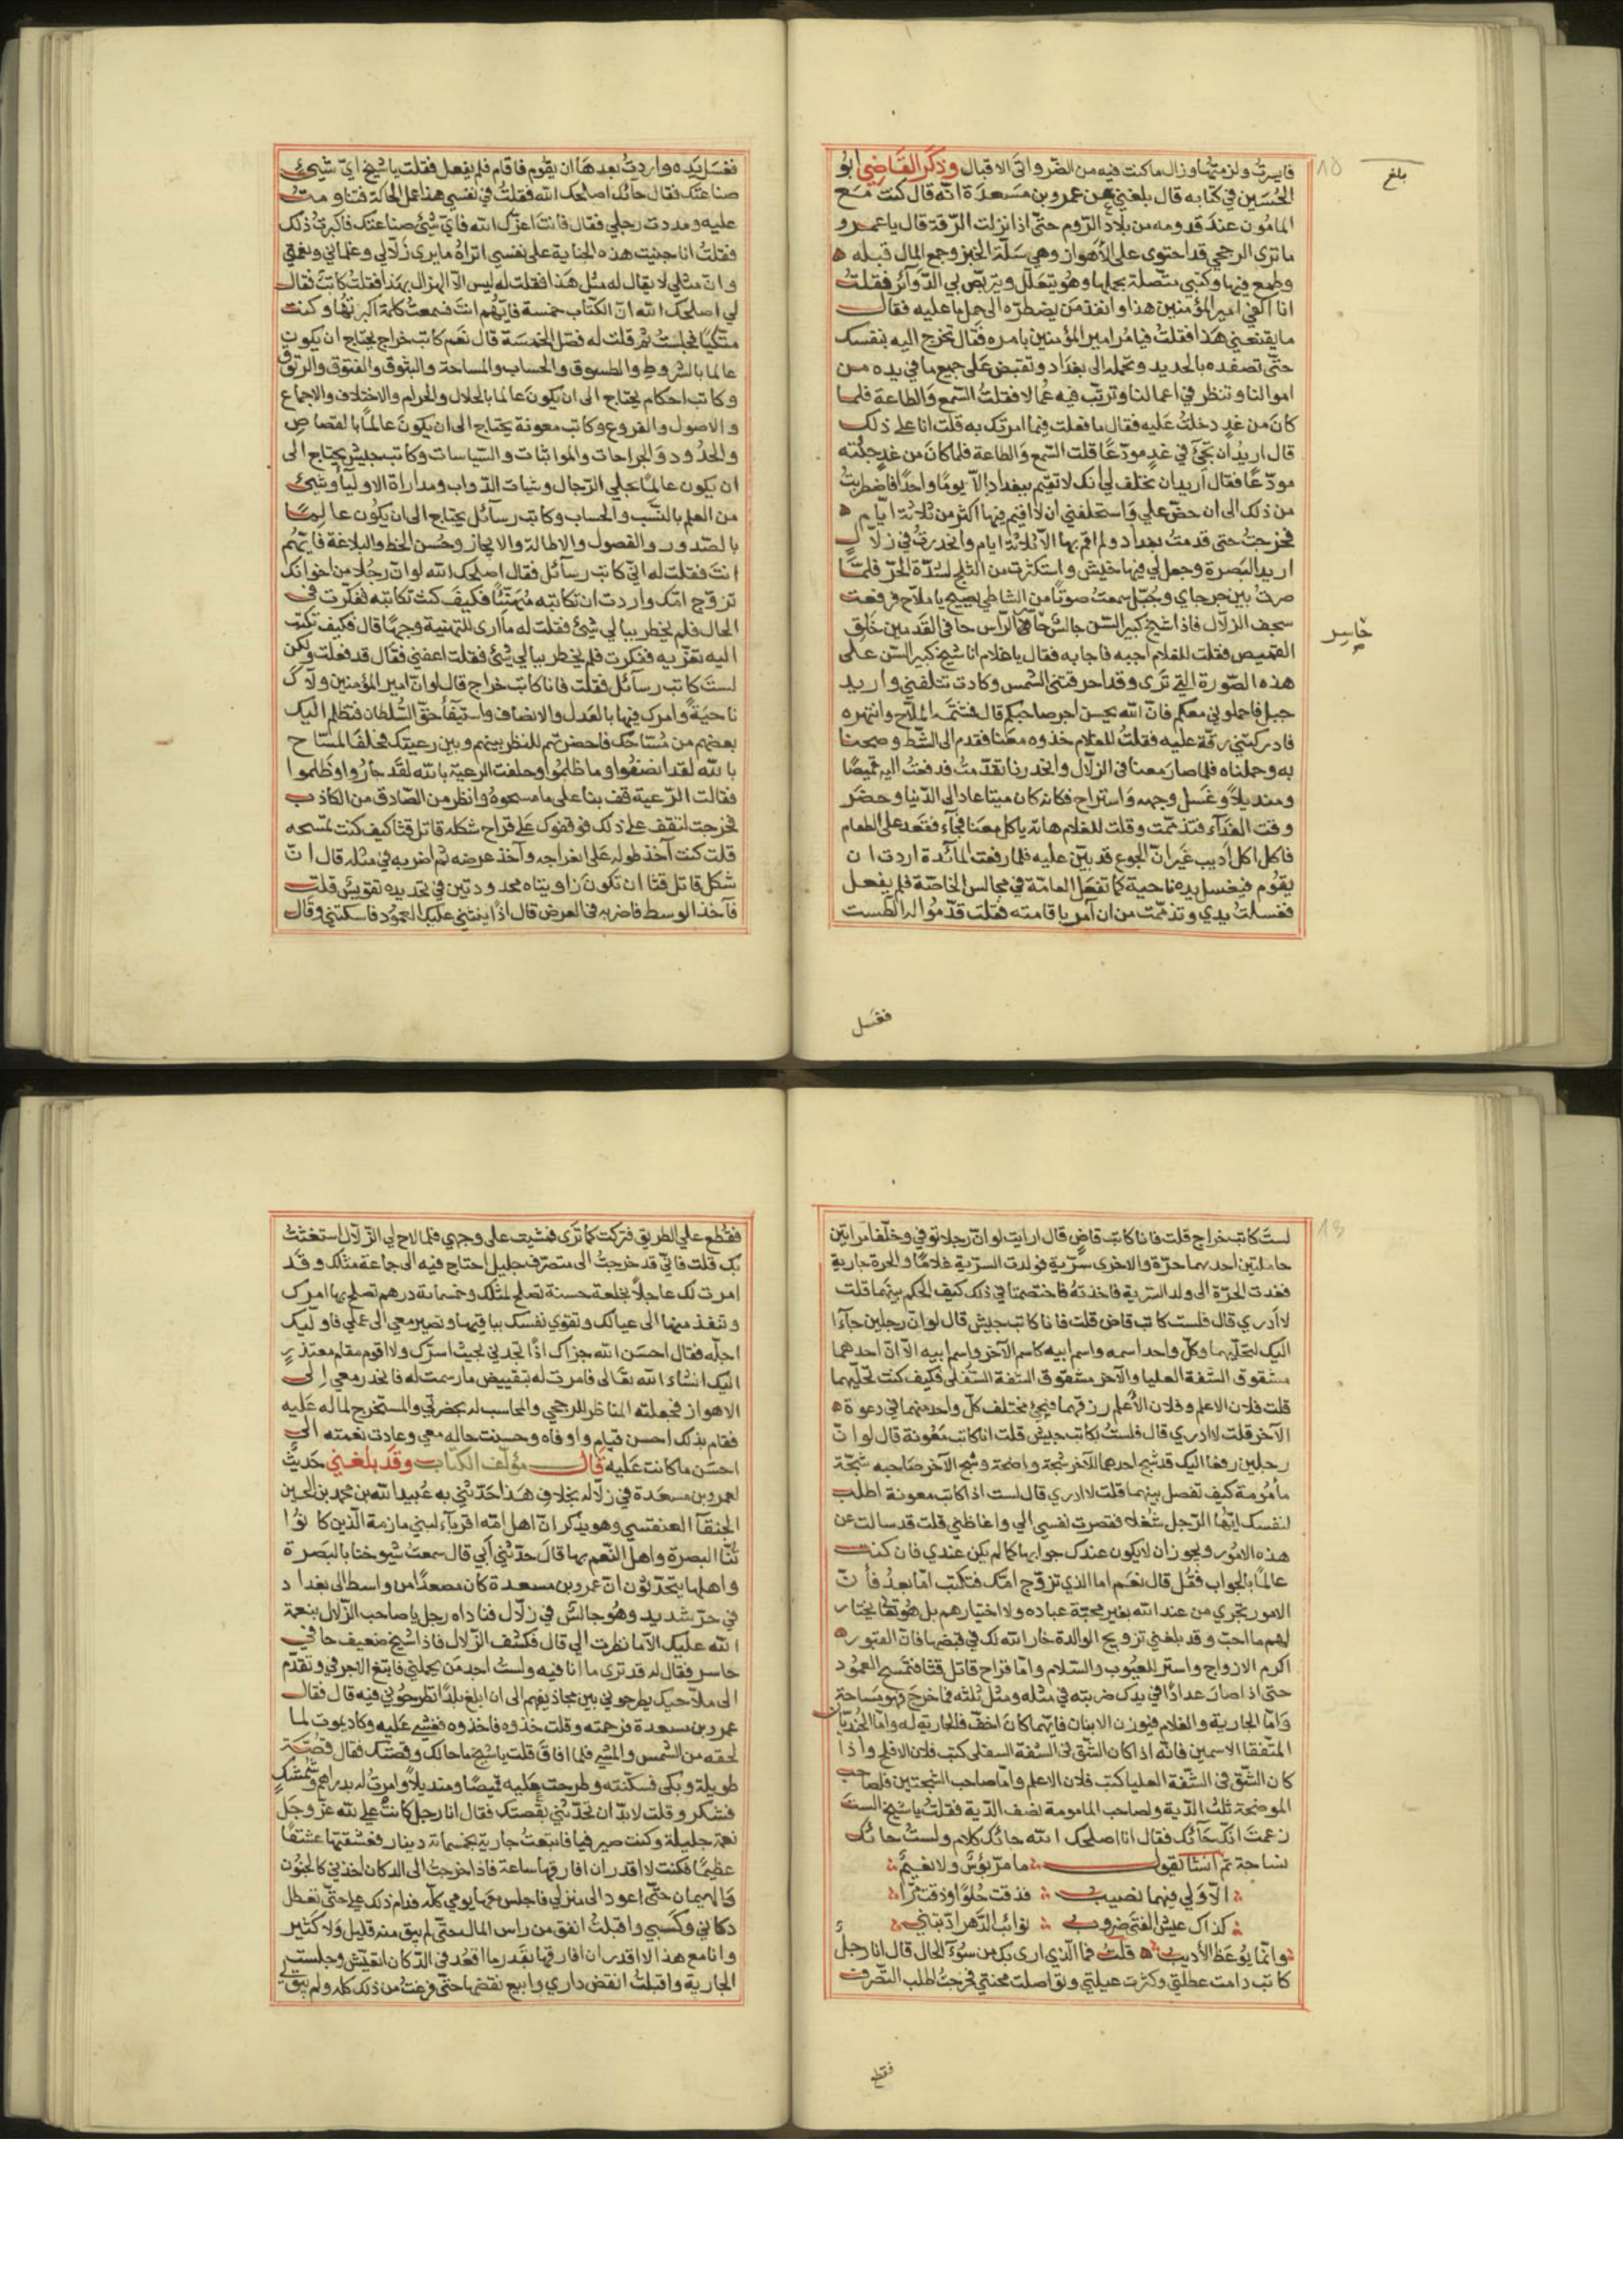 فايسرت ولزمتها وزال ماكنت فيه من الضر واتى الاقبال وذكر القاضي ابو
الحسين في كتابه قال بلغني عن عمرو بن مسعدة انه قال كنت مع
المامون عند قدومه من بلاد الروم حتى اذا نزلت الرقة قال يا عمرو
ما ترى الرجحي قد احتوى على الاهواز وهي سلة الخبز وجمع المال قبله
وطمع فيها وكتبي متصلة بحملها وهو يتعلل ويتربص بي الدوائر فقلت
انا اكفي امير المؤمنين هذا وانفذ من يضطره الى حمل ما عليه فقال
ما يقنعني هذا فقلت فيامر امير المؤمنين بامره فقال تخرج اليه بنفسك
حتى تصفده بالحديد وتحمله الى بغداد وتقبض على جميع ما في يده من
اموالنا وتنظر في اعمالنا وترتب فيه عمالا فقلت السمع والطاعة فلما
كان من غد دخلت عليه فقال ما فعلت فيما امرتك به قلت انا على ذلك
قال اريد ان تجئ في غد مودعا قلت السمع والطاعة فلما كان من غد جئته
مودعا فقال اريد ان تحلف لي انك لا تقيم ببغداد الا يوما واحدا فاضطربت
من ذلك الى ان حض علي واستحلفني ان لا اقيم فيها اكثر من ثلاثة ايام
فخرجت حتى قدمت بغداد ولم اقم بها الا ثلاثة ايام وانحدرت في زلال
اريد البصرة وجعل لي فيها خيش واستكثرت من الثلج لشدة الحر فلما
صرت بين جرجاي وجبل سمعت صوتا من الشاطي يصيح يا ملاح فرفعت
سجف الزلال فاذا شيخ كبير السن جالس حاسر الراس حافي القدمين خلق
القميص فقلت للغلام اجبه فاجابه فقال يا غلام انا شيخ كبير السن على
هذه الصورة التي ترى وقد احرقتني الشمس وكادت تتلفني واريد
جبل فاحملوني معكم فان الله يحسن اجر صاحبكم قال فشتمه الملاح وانتهره
فادركتني رقة عليه فقلت للغلام خذوه معنا فقدم الى الشط وصحنا
به وحملناه فلما صار معنا في الزلال وانحدرنا تقدمت فدفعت اليه قميصا
ومنديلا وغسل وجهه واستراح فكانه كان ميتا عاد الى الدنيا وحضر
وقت الغداء فتذممت وقلت للغلام هاته ياكل معنا فجاء فقعد على الطعام
فاكل اكل اديب غير ان الجوع قد بين عليه فلما رفعت المائدة اردت ان
يقوم فيغسل يده ناحية كما تفعل العامة في مجالس الخاصة فلم يفعل
فغسلت يدي وتذممت من ان آمر باقامته فقلت قدموا له الطست
بلغ
حاسر
فغسل
فغسل يده واردت بعدها ان يقوم فاقام فلم يفعل فقلت يا شيخ اي شيئ
صناعتك فقال حائك اصلحك الله فقلت في نفسي هذا عمل الحاكة فتناومت
عليه ومددت رجلي فقال فانت اعزك الله فاي شئ صناعتك فاكبرت ذلك
فقلت انا جنيت هذه الجناية على نفسي اتراه ما يرى زلالي وغلماني ونعمتي
وان مثلي لا يقال له مثل هذا فقلت له ليس الا الهزال بهذا فقلت كاتب فقال
لي اصلحك الله ان الكتاب خمسة فايهم انت فسمعت كلمة اكبرتها وكنت
متكيا فجلست ثم قلت له فصل الخمسة قال نعم كاتب خراج يحتاج ان يكون
عالما بالشروط والطسوق والحساب والمساحة والبثوق والفتوق والرتوق
وكاتب احكام يحتاج الى ان يكون عالما بالحلال والحرام والاختلاف والاجماع
والاصول والفروع وكاتب معونة يحتاج الى ان يكون عالما بالقصاص
والحدود والجراحات والمواثبات والسياسات وكاتب جيش يحتاج الى
ان يكون عالما بحلي الرجال وشيات الدواب ومداراة الاولياء وشيئ
من العلم بالنسب والحساب وكاتب رسائل يحتاج الى ان يكون عالما
بالصدور والفصول والاطالة والايجاز وحسن الخط والبلاغة فايهم
انت فقلت له اني كاتب رسائل فقال اصلحك الله لو ان رجلا من اخوانك
تزوج امك واردت ان تكاتبه مهنئا فكيف كنت تكاتبه ففكرت في
الحال فلم يخطر ببالي شئ فقلت له ما ارى للتهنية وجها قال فكيف تكتب
اليه تعزيه ففكرت فلم يخطر ببالي شئ فقلت اعفني فقال قد فعلت ولكن
لست كاتب رسائل فقلت فانا كاتب خراج قال لو ان امير المؤمنين ولاك
ناحية وامرك فيها بالعدل والانصاف واستيفا حق السلطان فتظلم اليك
بعضهم من مساحك فاحضرتهم للنظر بينهم وبين رعيتك فحلف المساح
بالله لقد انصفوا وما ظلموا وحلفت الرعية بالله لقد جاروا وظلموا
فقالت الرعية قف بنا على ما مسحوه وانظر من الصادق من الكاذب
فخرجت لتقف على ذلك فوقفوك على قراح شكله قاتل قثا كيف كنت تمسحه
قلت كنت آخذ طوله على انعراجه وآخذ عرضه ثم اضربه في مثله قال ان
شكل قاتل قثا ان تكون زاويتاه محدودتين في تحديده تقويس قلت
فآخذ الوسط فاضربه في العرض قال اذا ينثني عليك العمود فاسكتني وقال
لست كاتب خراج قلت فانا كاتب قاض قال ارايت لو ان رجلا توفي وخلف امراتين
حاملتين احديهما حرة والاخرى سرية فولدت السرية غلاما والحرة جارية
فغدت الحرة الى ولد السرية فاخذته فاختصمتا في ذلك كيف الحكم بينهما قلت
لا ادري قال فلست كاتب قاض قلت فانا كاتب جيش قال لو ان رجلين جاءا
اليك لتحليهما وكل واحد اسمه واسم ابيه كاسم الآخر واسم ابيه الا ان احدهما
مشقوق الشفة العليا والآخر مشقوق الشفة السفلى فكيف كنت تحليهما
قلت فلان الاعلم وفلان الاعلم رزقهما فيجئ مختلف كل واحد منهما في دعوة
الآخر قلت لا ادري قال فلست بكاتب جيش قلت انا كاتب معونة قال لو ان
رجلين رفعا اليك قد شج احدهما الآخر شجة واضحة وشج الآخر صاحبه شجة
مأمومة كيف تفصل بينهما قلت لا ادري قال لست اذا كاتب معونة اطلب
لنفسك ايها الرجل شغلا فقصرت نفسي الي واغاظني قلت قد سالت عن
هذه الامور ويجوز ان لا يكون عندك جوابها كما لم يكن عندي فان كنت
عالما بالجواب فقل قال نعم اما الذي تزوج امك فتكتب اما بعد فان
الامور تجري من عند الله بغير محبة عباده ولا اختيارهم بل هو تعا يختار
لهم ما احب وقد بلغني تزويج الوالدة خار الله لك في قبضها فان القبور
اكرم الازواج واستر للعيوب والسلام واما قراح قاتل قثا فتمسح العمود
حتى اذا صار عددا في يدك ضربته في مثله ومثل ثلثه فما خرج فهو مساحته
واما الجارية والغلام فيوزن الابنان فايهما كان اخف فالجارية له واما الجنديان
المتفقا الاسمين فانه اذا كان الشق في الشفة السفلى كتب فلان الافلح واذا
كان الشق في الشفة العليا كتب فلان الاعلم واما صاحب الشجتين فلصاحب
الموضحة ثلث الدية ولصاحب المامومة نصف الدية فقلت يا شيخ الست
زعمت انك حائك فقال انا اصلحك الله حائك كلام ولست حائك
نساجة ثم انشا يقول ما مر بؤس ولا نعيم
الا ولي فيهما نصيب فذقت حلوا وذقت مرا
كذاك عيش الفتى ضروب نوائب الدهر ادبتني
وانما يوعظ الاديب قلت فما الذي ارى بك من سوء الحال قال انا رجل
كاتب دامت عطلتي وكثرت عيلتي وتواصلت محنتي فخرجت اطلب التصرف
فقطع
فقطع علي الطريق فتركت كما ترى فمشيت على وجهي فلما لاح لي الزلال استغثت
بك قلت فاني قد خرجت الى متصرف جليل احتاج فيه الى جماعة مثلك وقد
امرت لك عاجلا بخلعة حسنة تصلح لمثلك وخمسمائة درهم تصلح بها امرك
وتنفذ منها الى عيالك وتقوي نفسك بباقيها وتصير معي الى عملي فاوليك
اجله فقال احسن الله جزاك اذا تجدني بحيث اسرك ولا اقوم مقام معتذر
اليك انشاء الله تعالى فامرت له بتقبيض ما رسمت له فانحدر معي الى
الاهواز فجعلته المناظر للرجحي والمحاسب له بحضرتي والمستخرج لما له عليه
فقام بذلك احسن قيام واوفاه وحسنت حاله معي وعادت نعمته الى
احسن ما كانت عليه قال مؤلف الكتاب وقد بلغني حديث
لعمرو بن مسعدة في زلاله بخلاف هذا حدثني به عبيد الله بن محمد بن الحسين
العبقسي وهو يذكر ان اهل امه اقرباء لبني مازمة الذين كانوا
تنا البصرة واهل النعم بها قال حدثني ابي قال سمعت شيوخنا بالبصرة
واهلها يتحدثون ان عمرو بن مسعدة كان مصعدا من واسط الى بغداد
في حر شديد وهو جالس في زلال فناداه رجل يا صاحب الزلال بنعمة
الله عليك الا ما نظرت الي قال فكشف الزلال فاذا شيخ ضعيف حافي
حاسر فقال له قد ترى ما انا فيه ولست اجد من يحملني فابتغ الاجر في وتقدم
الى ملاحيك يطرحوني بين مجاذيفهم الى ان ابلغ بلدا تطرحوني فيه قال فقال
عمرو بن مسعدة فرحمته وقلت خذوه فاخذوه فغشي عليه وكاد يموت لما
لحقه من الشمس والمشي فلما افاق قلت يا شيخ ما حالك وقصتك فقال قصة
طويلة وبكى فسكنته وطرحت عليه قميصا ومنديلا وامرت له بدراهم وشمشك
فشكر وقلت لا بد ان تحدثني بقصتك فقال انا رجل كانت علي لله عز وجل
نعمة جليلة وكنت صيرفيا فابتعت جارية بخمسمائة دينار فعشقتها عشقا
عظيما فكنت لا اقدر ان افارقها ساعة فاذا خرجت الى الدكان اخذني كالجنون
والهيمان حتى اعود الى منزلي فاجلس معها يومي كله فدام ذلك علي حتى تعطل
دكاني وكسبي واقبلت انفق من راس المال حتى لم يبق منه قليل ولا كثير
وانا مع هذا لا اقدر ان افارقها بقدر ما اقعد في الدكان اتعيش وجلست
الجارية واقبلت انقض داري وابيع نقضها حتى فرغت من ذلك كله ولم يبق لي